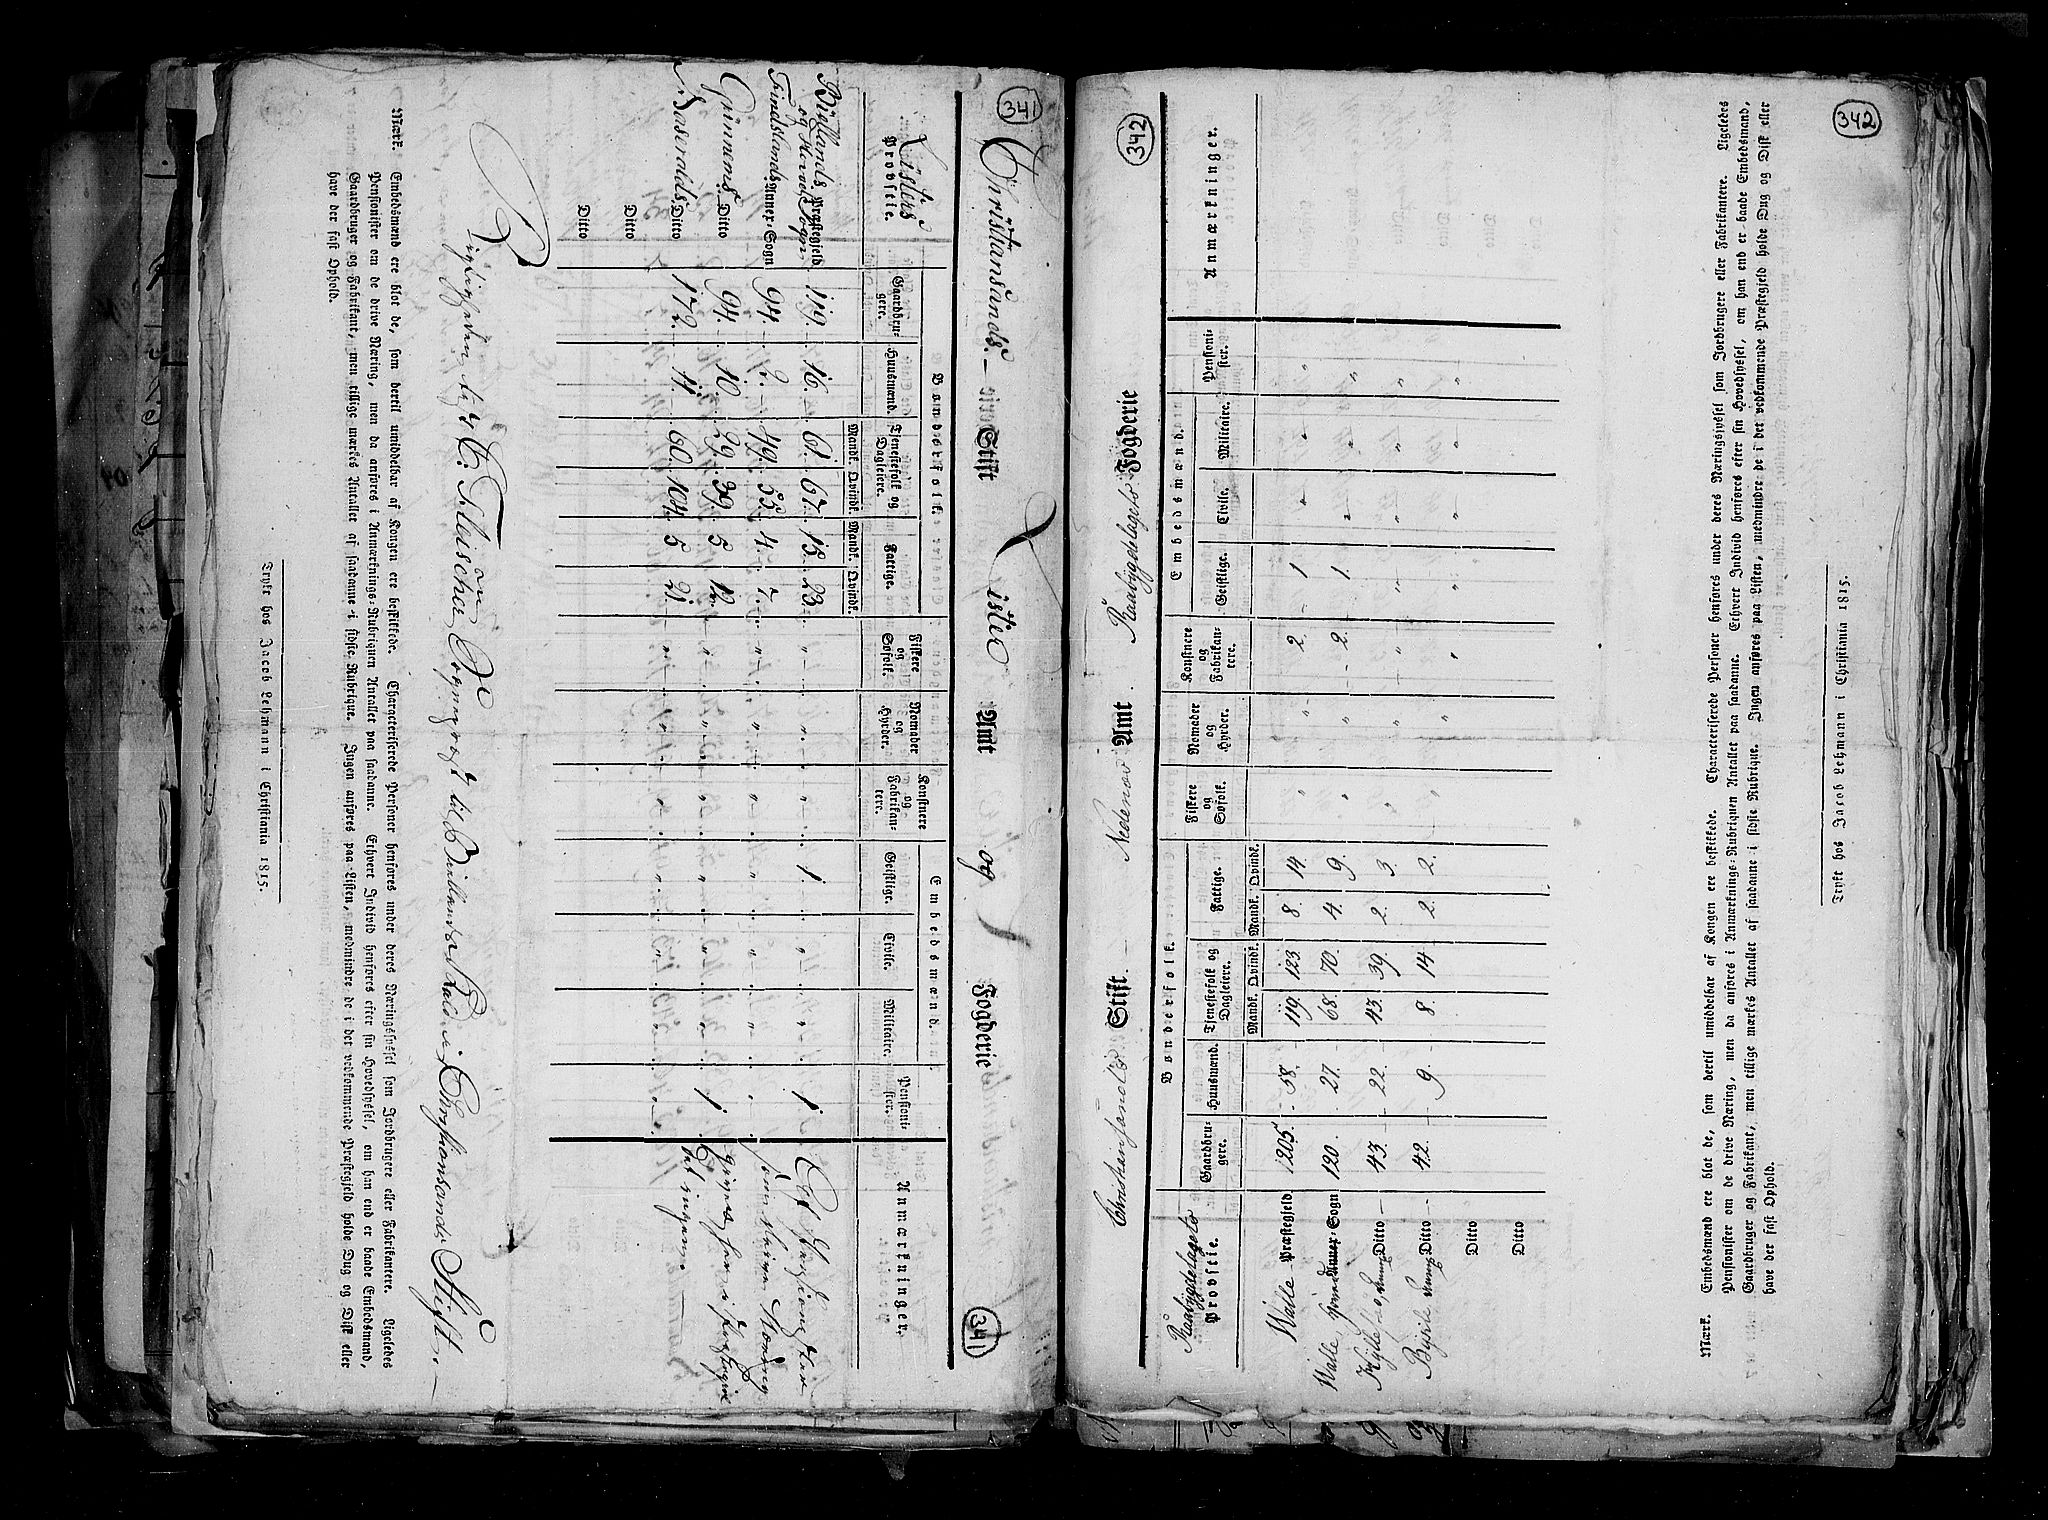 341
Christiansands Stift Lister Amt og Fogderie
341
Listers Provstie.
Bondestfolk.
Gaardbrugere.
Huusmænd.
Tjenestefolk og Dagleiere.
Mandk. Qvindk.
Fattige.
Mandk. Qvindk.
Fiskere og Søfolk.
Nomader og Hyrder.
Konstnere og Fabrikantere.
Embedsmænd.
Geistlige.
Civile.
Militaire.
Pensionister.
Anmærkninger.
Præstegjeld og Sogn 119. 16. 61. 67. 15. 23. " " " 1. " " 1.
Findslands Annex-Sogn 94. 2. 49. 55. 4. 7. " " " " " " "
Grinnems Ditto 94. 10. 29. 39. 5. 12. " " " " " " 1.
Ditto 172. 11. 60. 104. 5. 21. " " " " " " "
Ditto
Ditto
Rigtigheden
Fleischer Sognepræst til Christiansands Stift.
Mærk. Embedsmænd ere blot de, som dertil umiddelbar af Kongen ere beskikkede. Characteriserede Personer henføres under deres Næringsjyssel som Jordbrugere eller Fabrikantere. Ligeledes
Pensionister om de drive Næring, men da anføres i Anmærknings-Rubriquen Antallet paa saadanne. Ethvert Individ henføres efter sin Hovedsyssel, om han end er baade Embedsmand,
Gaardbruger og Fabrikant, men tillige mærkes Antallet af saadanne i sidste Rubrique. Ingen anføres paa Listen, medmindre de i det vedkommende Præstegjeld holde Dug og Disk eller
have der fast Ophold.
Trykt hos Jacob Lehmann i Christiania 1815.
342
342
Christiansands Stift. Nedenæs Amt. Raabygdelagets Fogderie
Raabygdelagets Provstie.
Bønderfolk.
Gaardbrugere.
Huusmænd.
Tjenestefolk og Dagleiere.
Mandk. Qvindk.
Fattige.
Mandk. Qvindk.
Fiskere og Søfolk.
Nomader og Hyrder.
Konstnere og Fabrikantere.
Embedsmænd.
Geistlige.
Civile.
Militaire.
Pensionister.
Anmærkninger.
Walle Præstegjeld 205. 58. 119. 123. 8. 14. " " 2. 1 " " "
Walle Annex-Sogn 120. 27. 68. 70. 4. 9. " " 2. 1. " " "
Ditto 43. 22. 43. 39. 2. 3. " " " " " " "
Ditto 42. 9. 8. 14. 2. 2. " " " " " " "
Ditto
Ditto
Mærk. Embedsmænd ere blot de, som dertil umiddelbar af Kongen ere beskikkede. Characteriserede Personer henføres under deres Næringsjyssel som Jordbrugere eller Fabrikantere. Ligeledes
Pensionister om de drive Næring, men da anføres i Anmærknings-Rubriquen Antallet paa saadanne. Ethvert Individ henføres efter sin Hovedsyssel, om han end er baade Embedsmand,
Gaardbruger og Fabrikant, men tillige mærkes Antallet af saadanne i sidste Rubrique. Ingen anføres paa Listen, medmindre de i det vedkommende Præstegjeld holde Dug og Disk eller
have der fast Ophold.
Trykt hos Jacob Lehmann i Christiania 1815.